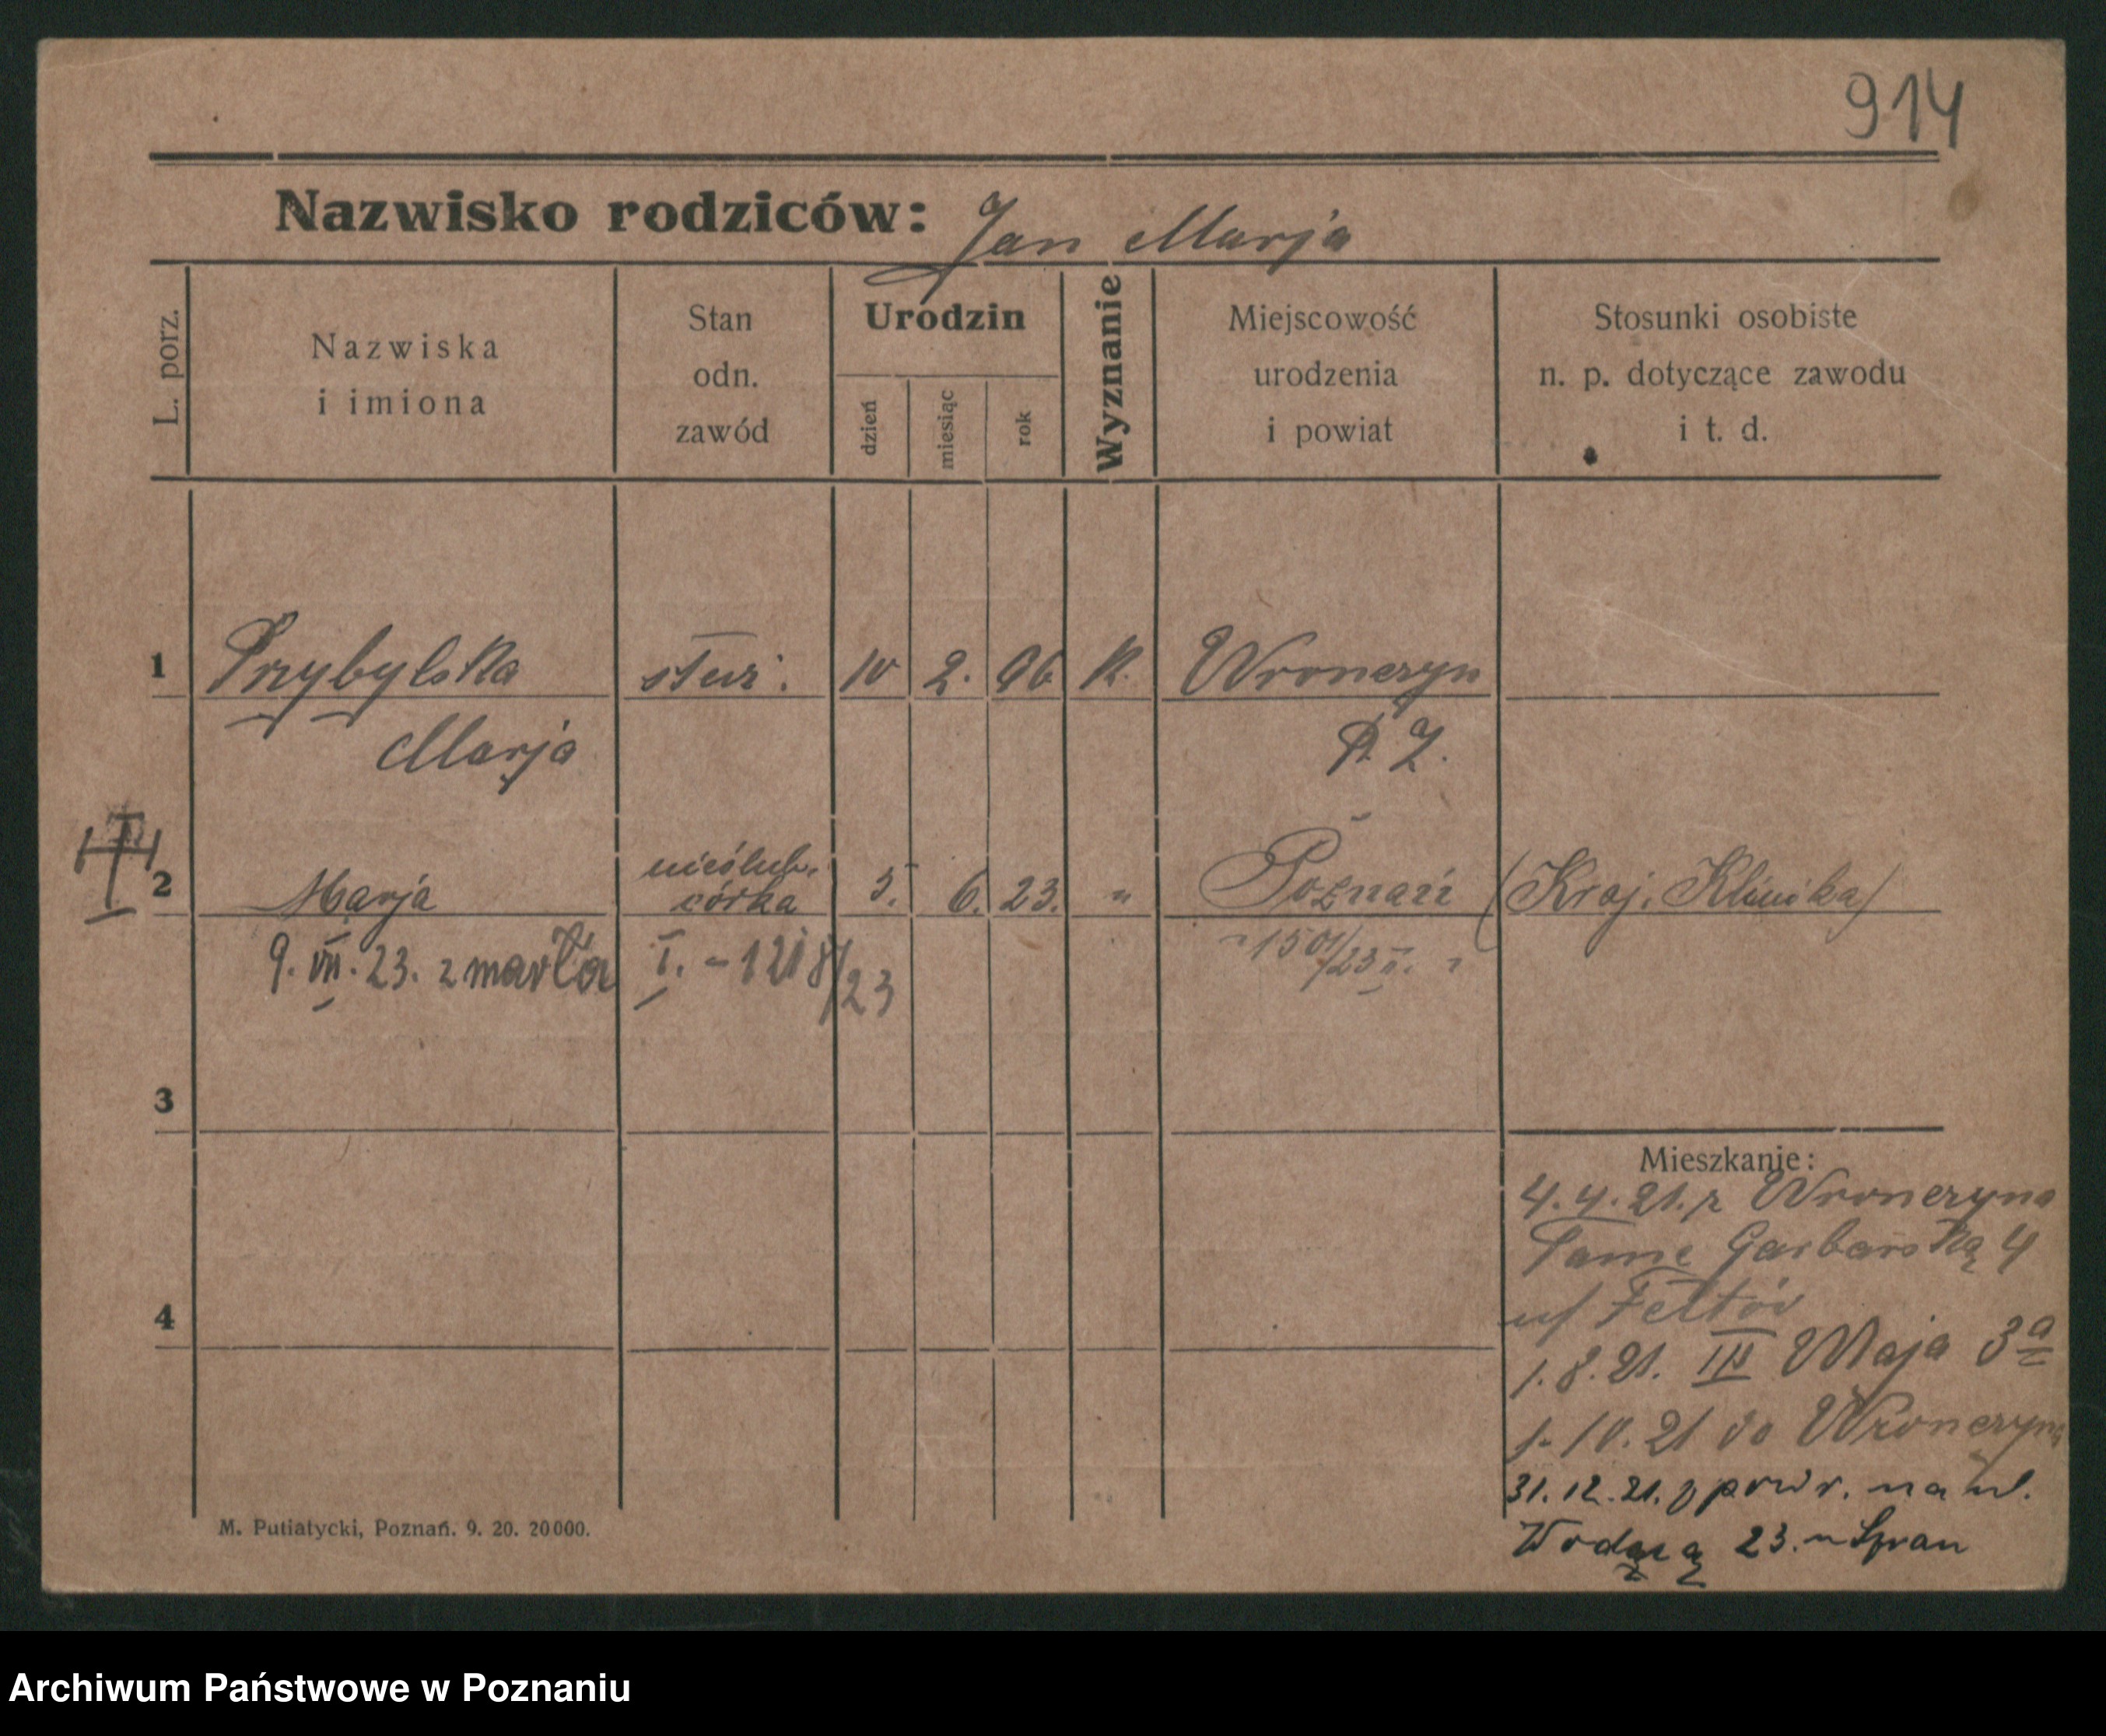 914
Nazwisko rodziców: Jan Marja
L. porz.
Nazwiska
i imiona
Stan
odn.
zawód
Urodzin
dzień
miesiąc
rok
Wyznanie
Miejscowość
urodzenia
i powiat
Stosunki osobiste
n. p. dotyczące zawodu
i t. d.
1 Przybylska służ. 10 2. 96 K. Wronczyn
Marja
nieślub.
2 Marja córka 5. 6. 23. " Poznań (Kraj. Klinika)
9. VII. 23. zmarła I. - 1218/23 1501/23 II.
3
Mieszkanie:
4. 4. 21. z Wronczyna
Tamę Garbarską 4
4
1. 8. 21. III Maja 3a
1. 10. 21 do Wronczyna
31. 12. 21. powr. na ul.
Wodną 23.
M. Putiatycki, Poznań. 9. 20. 20000.
Archiwum Państwowe w Poznaniu